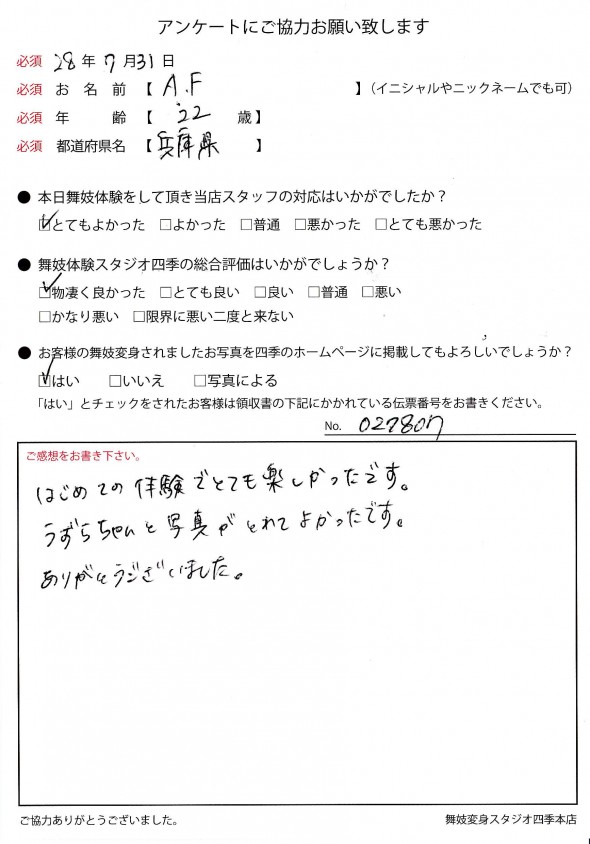 アンケートにご協力お願い致します
必須 28年7月31日
必須 お名前【 A.F 】(イニシャルやニックネームでも可)
必須 年齢【 22 歳】
必須 都道府県名【 兵庫県 】
● 本日舞妓体験をして頂き当店スタッフの対応はいかがでしたか？
☑とてもよかった □よかった □普通 □悪かった □とても悪かった
● 舞妓体験スタジオ四季の総合評価はいかがでしょうか？
☑物凄く良かった □とても良い □良い □普通 □悪い
□かなり悪い □限界に悪い二度と来ない
● お客様の舞妓変身されましたお写真を四季のホームページに掲載してもよろしいでしょうか？
☑はい □いいえ □写真による
「はい」とチェックをされたお客様は領収書の下記にかかれている伝票番号をお書きください。
No. 027807
ご感想をお書き下さい。
はじめての体験でとても楽しかったです。
うずらちゃんと写真がとれてよかったです。
ありがとうございました。
ご協力ありがとうございました。
舞妓変身スタジオ四季本店